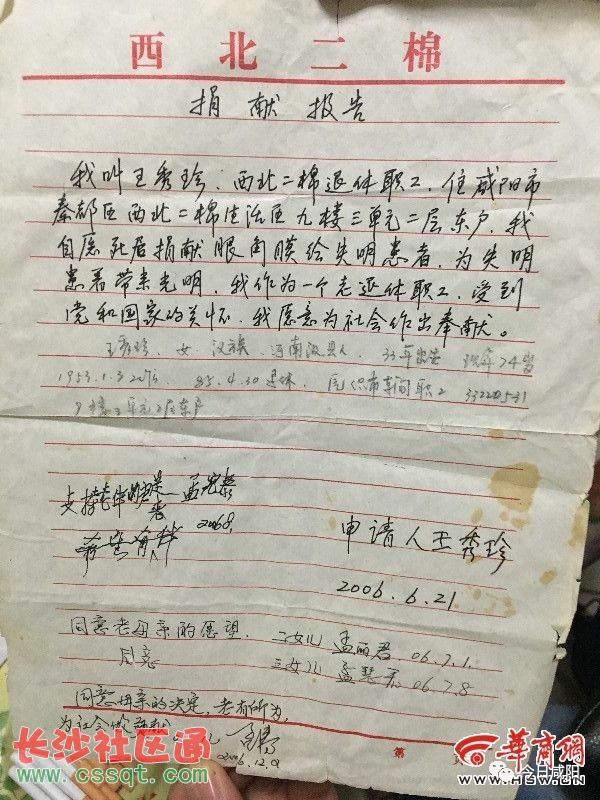 西北二棉
捐献报告
我叫王秀珍，西北二棉退休职工，住咸阳市
秦都区西北二棉生活区九楼三单元二层东户，我
自愿死后捐献眼角膜给失明患者，为失明
患者带来光明，我作为一个老退休职工，受到
党和国家的关怀，我愿意为社会作出奉献。
王秀珍，女 汉族 河南 人 33年出生 现年74岁
1953.1.3 85.4.30退休 职工 33220531
9楼3单元2层东户
支持老伴的
2006.8.
申请人王秀珍
2006.6.21
同意老母亲的愿望. 二女儿 孟丽君 06.7.1
同意 三女儿 孟慧君 06.7.8
同意母亲的决定，老有所为，
为社会做
2006.12.9
第
长沙社区通
www.cssqt.com
华商网
HSW.CN
今日咸阳